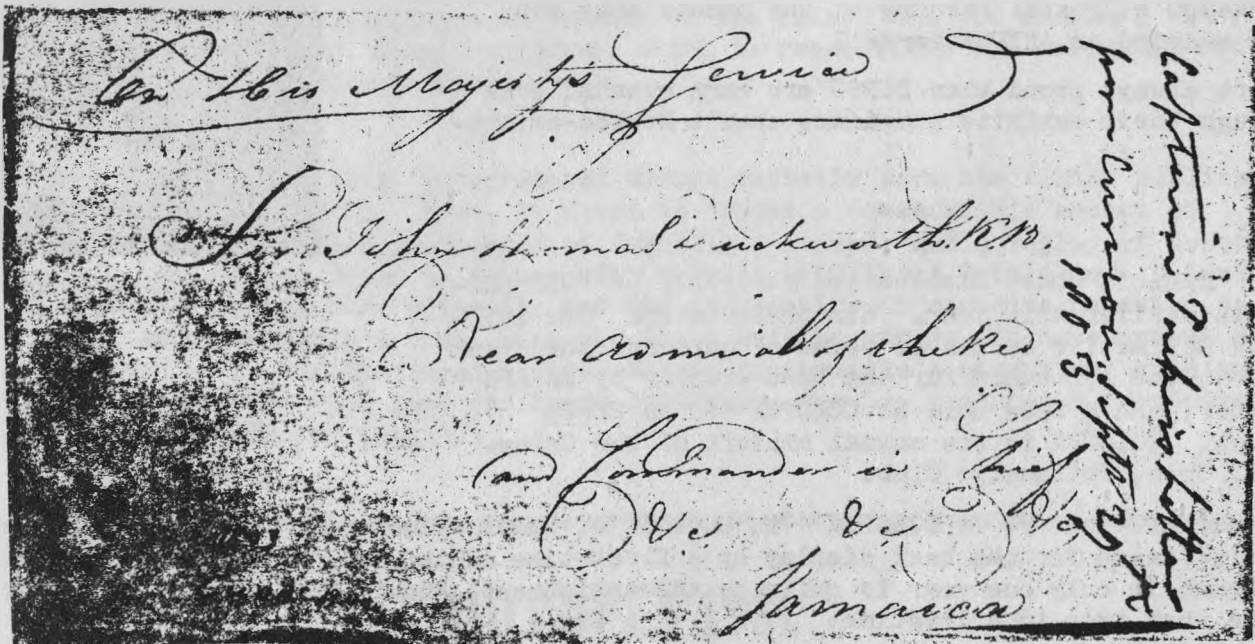 On His Majesty's Service
Sir John Thomas Duckworth KB
Rear Admiral of the Red
and Commander in Chief
&c &c &c
Jamaica
Captain Perkins's letter
from Curracoa Septr 29th
1803